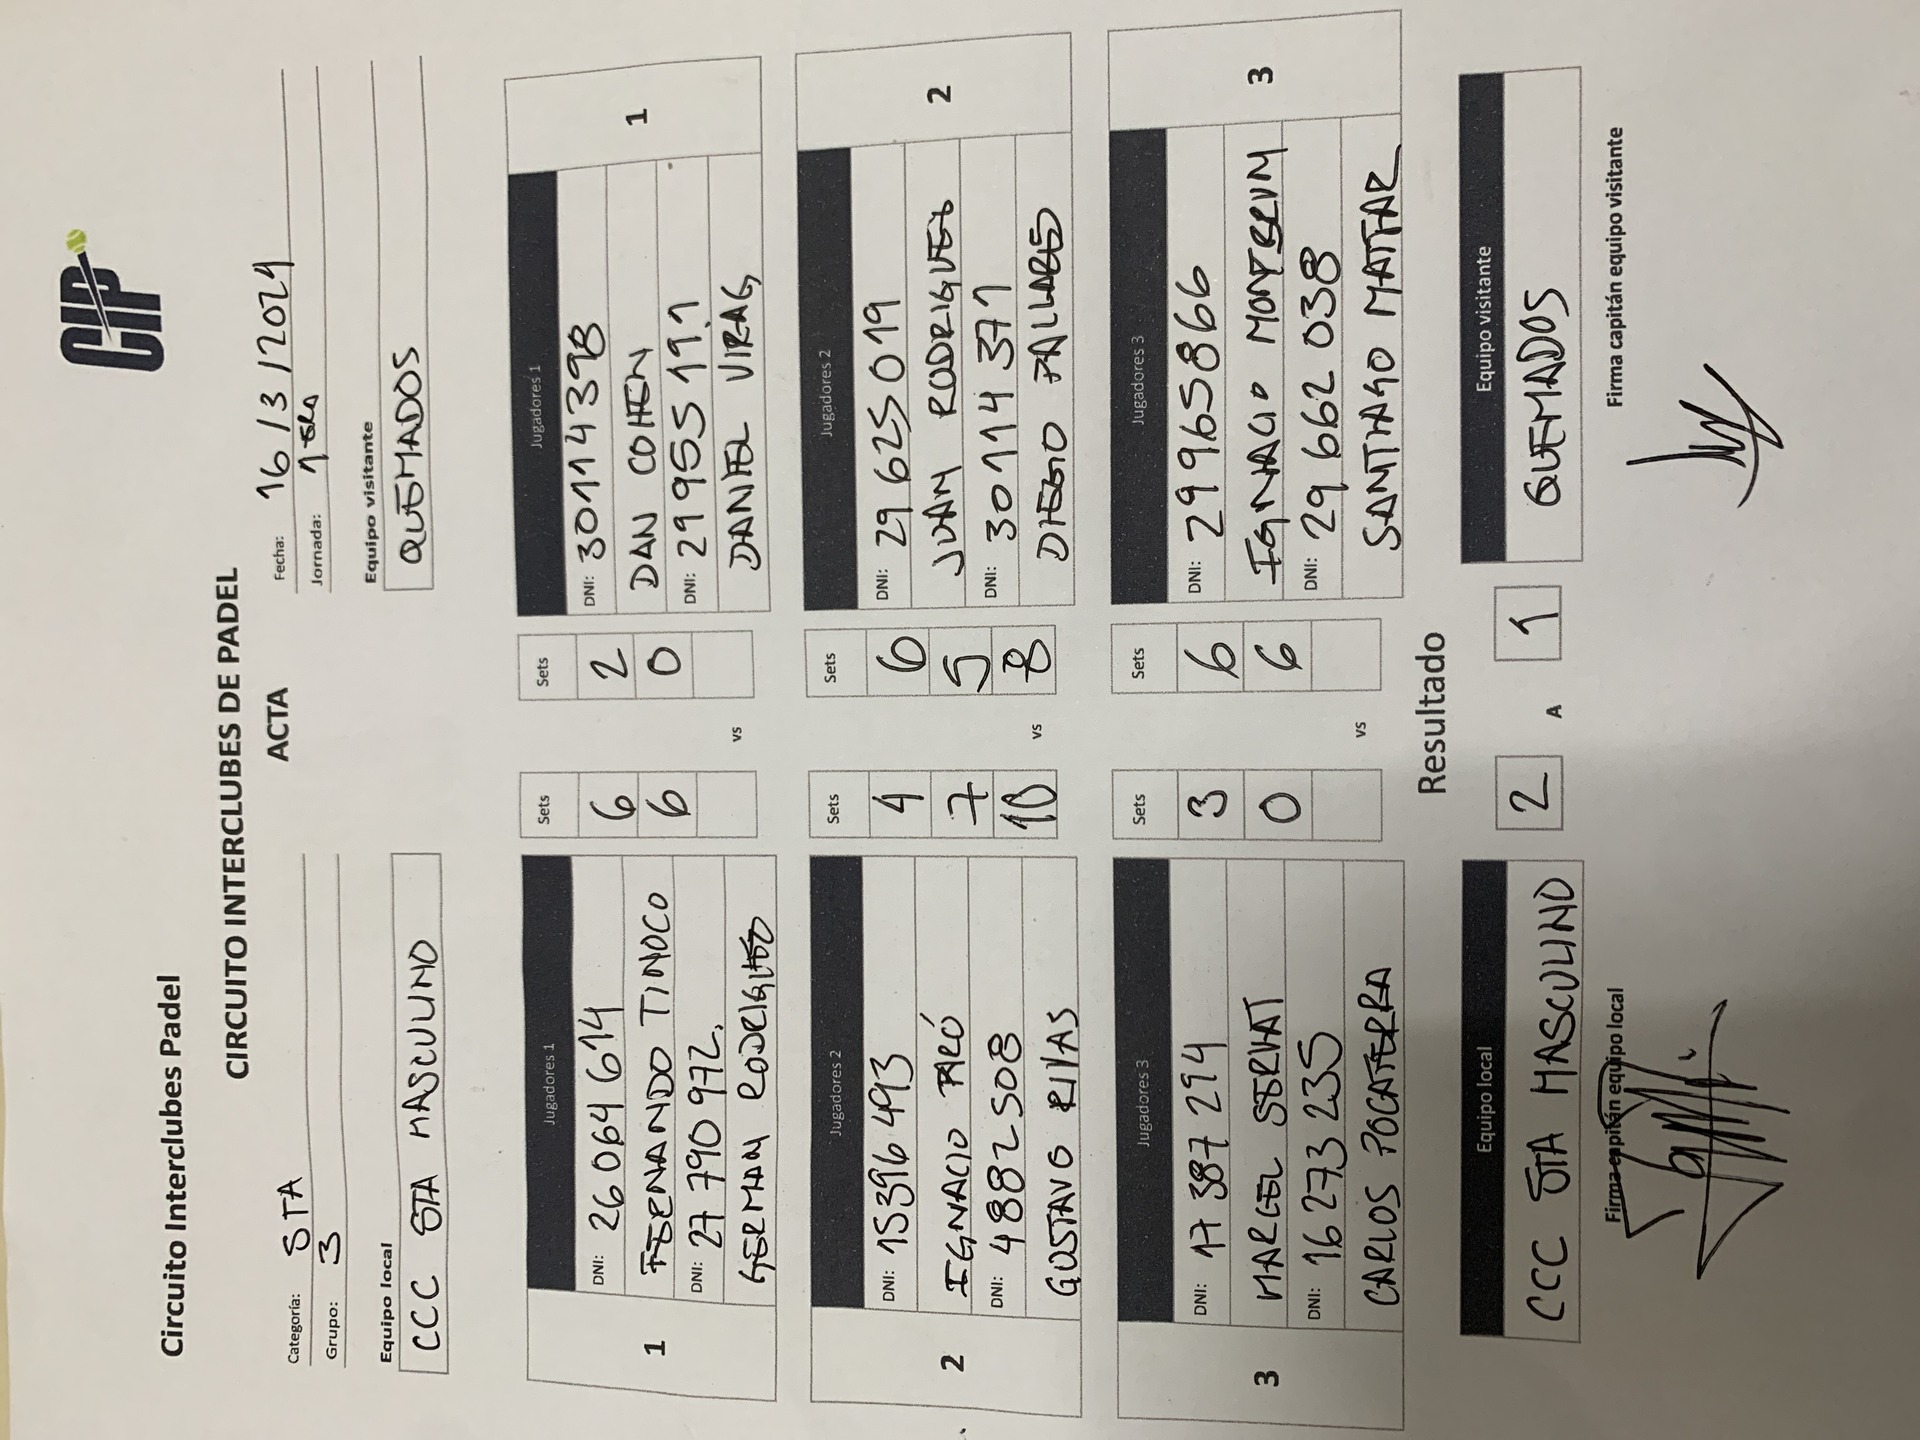 Circuito Interclubes Padel
CIP
CIRCUITO INTERCLUBES DE PADEL
ACTA
Categoría: 5TA
Fecha: 16/3/2024
Grupo: 3
Jornada: 1era
Equipo local
Equipo visitante
CCC 5TA MASCULINO
QUEMADOS
Jugadores 1
Sets
Sets
Jugadores 1
1
DNI: 26064614
6
2
DNI: 30114398
1
FERNANDO TINOCO
6
0
DAN COHEN
DNI: 27790972.
DNI: 2995519.1
GERMAN RODRIGUEZ
vs
DANIEL VIRAG
Jugadores 2
Sets
Sets
Jugadores 2
2
DNI: 15396493
4
6
DNI: 29625019
2
IGNACIO PICÓ
7
5
JUAN RODRIGUEZ
DNI: 4882508
10
8
DNI: 30114371
GUSTAVO RIVAS
vs
DIEGO PALLARES
Jugadores 3
Sets
Sets
Jugadores 3
3
DNI: 17387294
3
6
DNI: 29965866
3
MARCEL SERVAT
0
6
IGNACIO MONTBRUM
DNI: 16273235
DNI: 29662038
CARLOS POCATERRA
vs
SANTIAGO MATTAR
Resultado
Equipo local
Equipo visitante
CCC 5TA MASCULINO
2
A
1
QUEMADOS
Firma capitán equipo local
Firma capitán equipo visitante